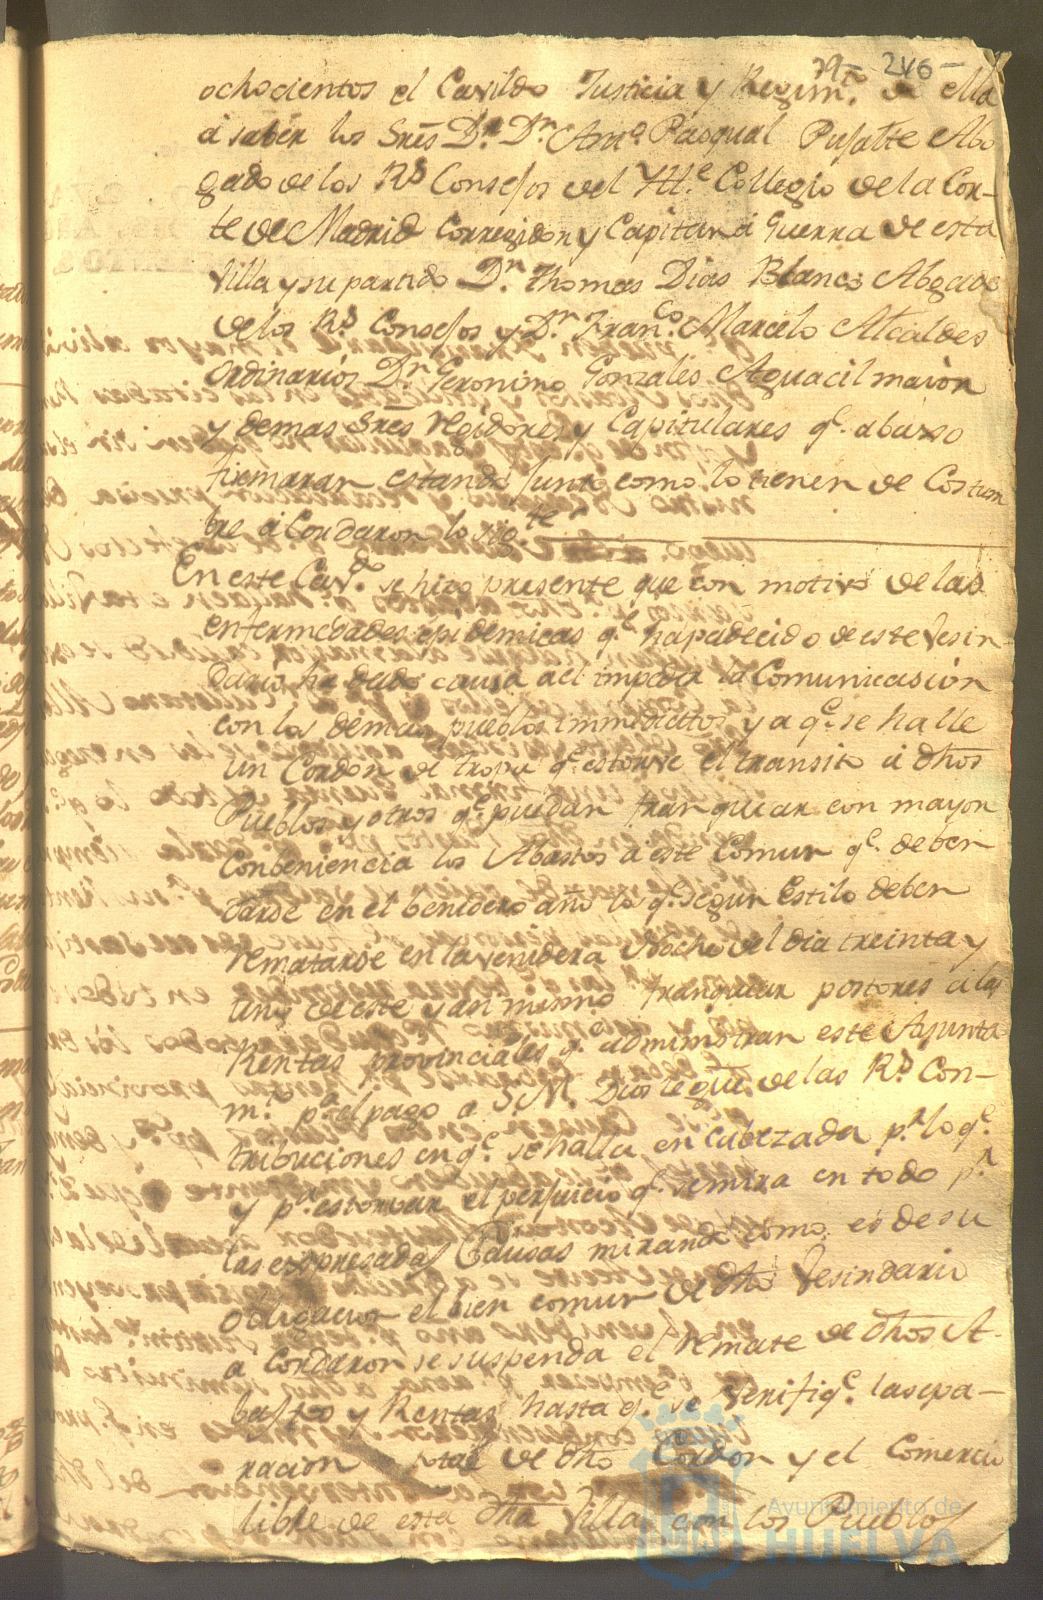 79- 246-
ochocientos el Cavildo Justicia y Regim.to de ella
a saber los Sres D.r D.n Ant.o Pasqual Pusalte Abo
gado de los R.s Consejos del Ytt.e Collegio de la Cor-
te de Madrid Corregidor y Capitan á Guerra de esta
Villa y su partido D.n Thomas Dias Blanco Abogado
de los R.s Consejos y D.n Fran.co Marcelo Alcaldes
Ordinarios D.n Geronimo Gonzales Aguacil maior
y demas Sres Regidores y Capitulares q.e abaxo
firmaran estando Junto como lo tienen de Costum
bre acordaron lo sig.te
En este Cav.do se hizo presente que con motivo de las
enfermedades epidemicas q.e ha padecido de este Vesin
dario ha dado causa a el impedir la Comunicasión
con los demas pueblos immediatos y a q.e se halle
un Cordon de tropa q.e estorve el transito á dhos
Pueblos y otros q.e puedan franquear con mayor
Conbeniencia los Abastos á este Comun q.e deben
darse en el benidero año lo q.e segun Estilo deben
rematarse en la venidera Noche del dia treinta y
uno de este y asi mismo franquear postores a las
Rentas provinciales q.e administran este Ayunta
m.to p.a el pago a S. M. Dios le gue de las R.s Con-
tribuciones en q.e se halla encabezada p.r lo q.e
y p.a estorvar el perjuicio q.e se mira en todo p.r
las expresadas Causas mirando como es de su
obligacion el bien comun de dho Vesindario
acordaron se suspenda el remate de dhos A-
bastos y Rentas hasta q.e se verifiq.e la sepa-
racion total de dho Cordon y el Comercio
libre de esta dha Villa con los Pueblos
Ayuntamiento de
HUELVA